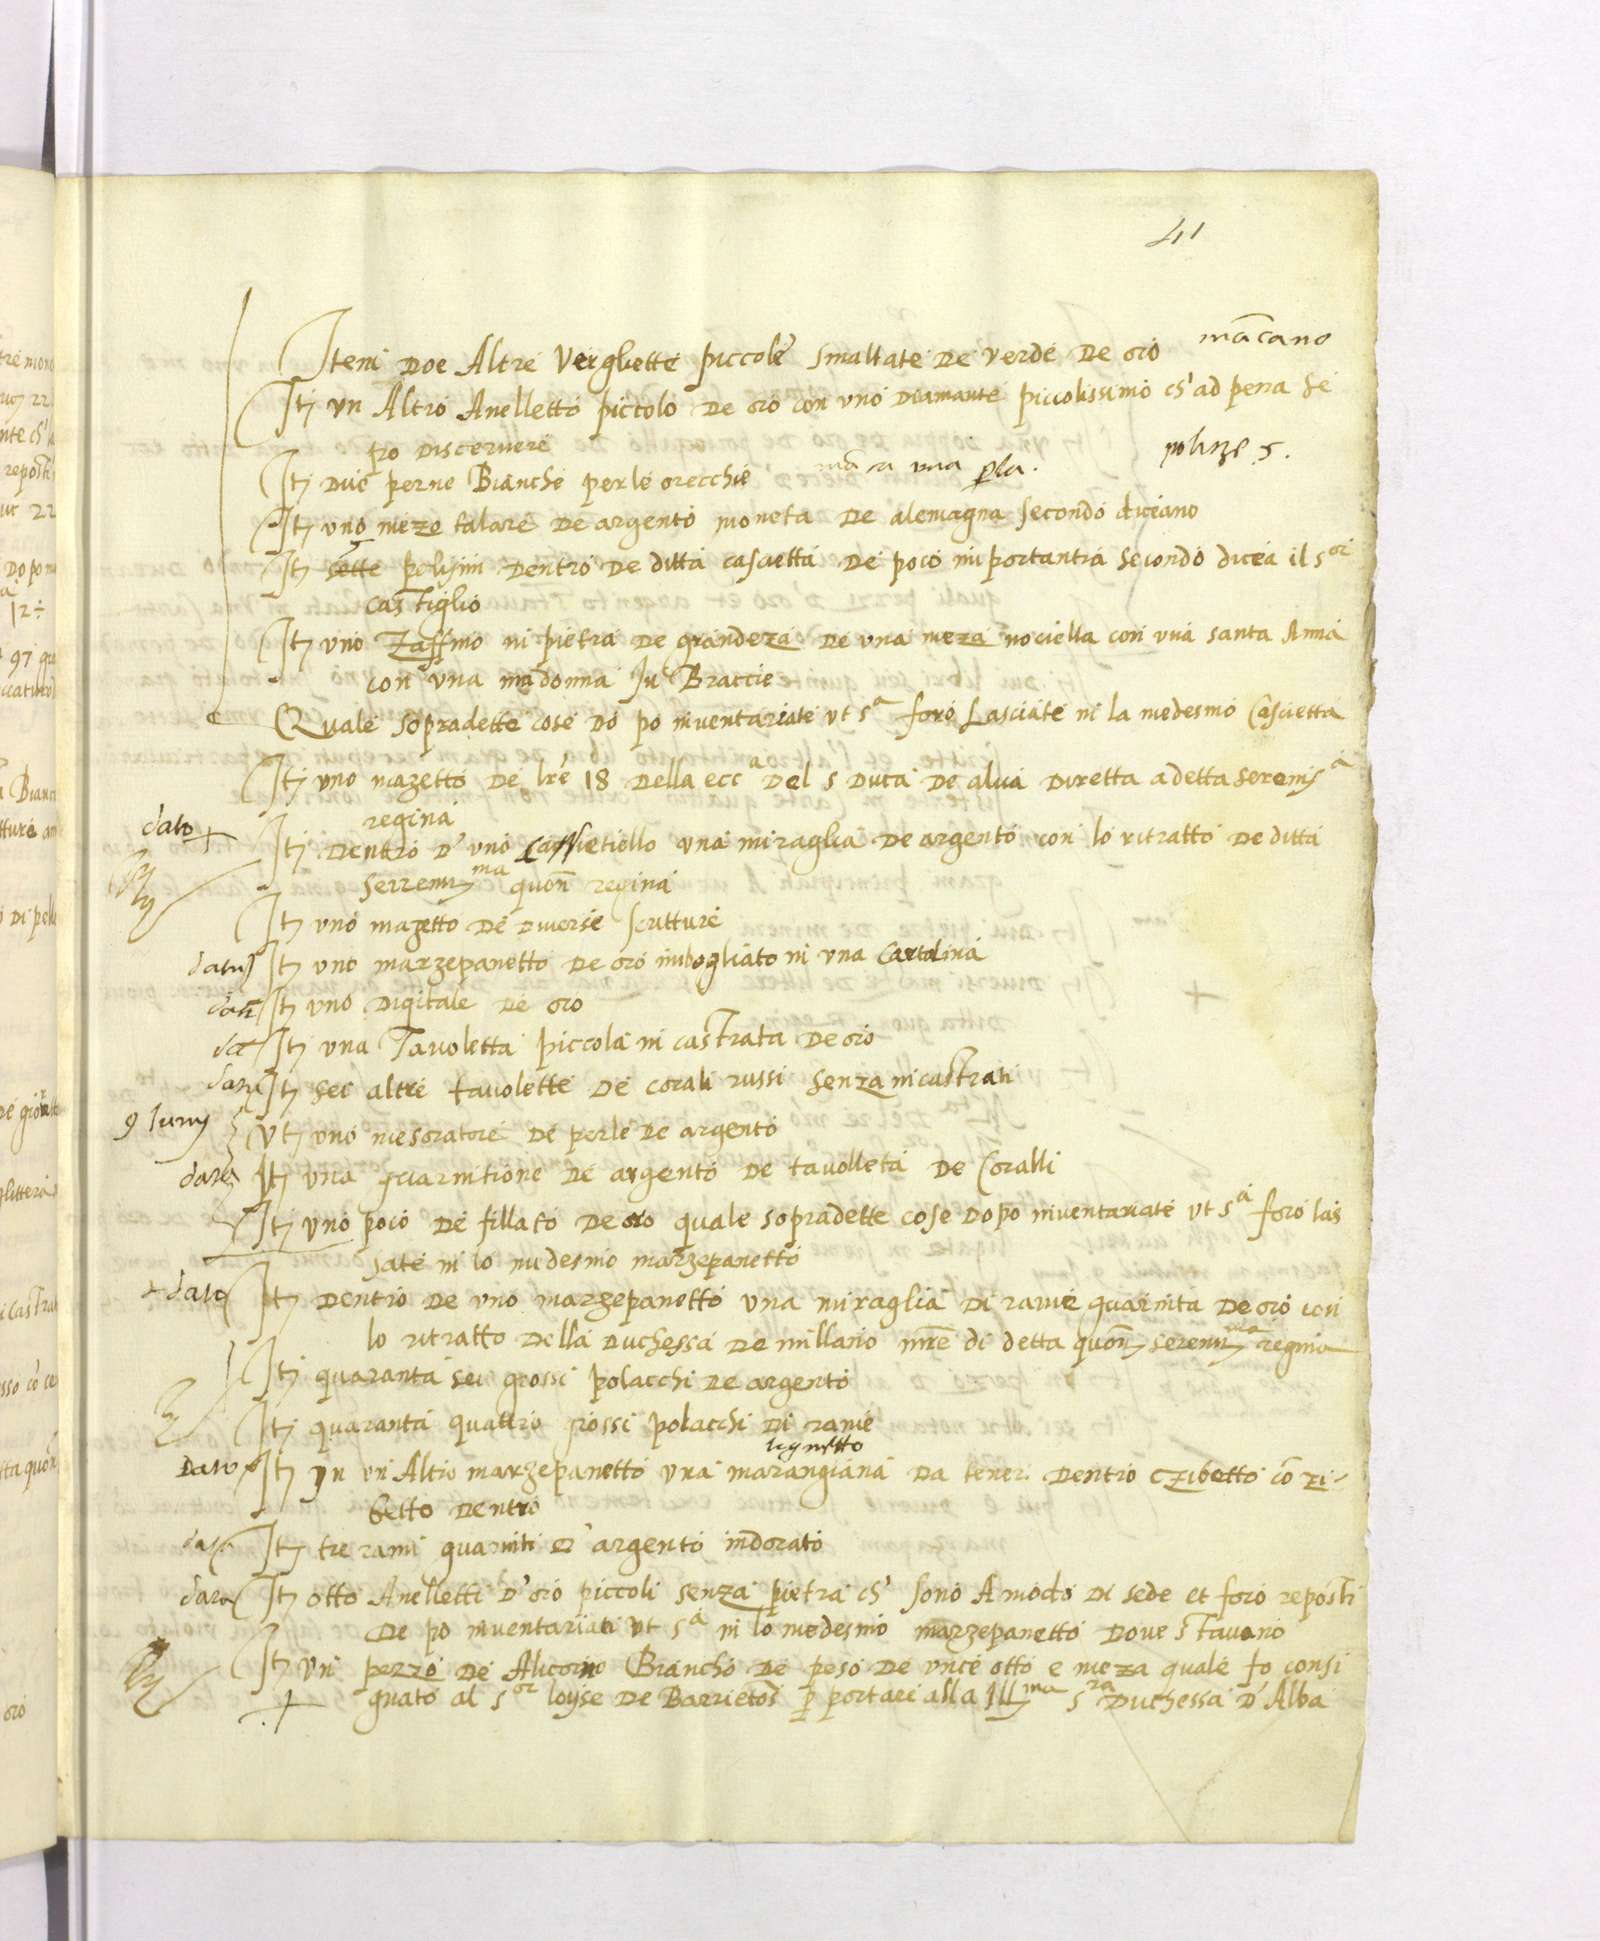 41
Itens Doe Altre Verghette piccole smaltate De verde De oro mācano
Itȝ vn Altro Anelletto piccolo De oro con uno Diamante piccolissimo ch' ad pena se
po Discernere
Itȝ Due perne Bianche per le orecchie māca una pla. polize 5.
Itȝ uno meze talare De argento moneta De alemagna secondo diciano
Itȝ sette polisini Dentro De ditta cascietta De poco importantia secondo dicea il s.or
Castiglio
Itȝ uno Zaffino in pietra De grandeza De una meza nociella con una santa Anna
con una madonna In Braccie
Quale sopradette cose Do po inventariate ut s.a foro Lasciate in la medesmo Cascietta
Itȝ uno mazetto De lr̄e 18 Della ecc.a Del s Duca De alva Diretta a detta serenis.a
regina
dato + Itȝ Dentro D'uno cassietiello una miraglia De argento con lo ritratto De ditta
serrenis.ma quon̄ regina
Itȝ uno mazetto De Diverse scritture
datus Itȝ uno marzepanetto De oro imbogliato in una Cartolina
dat Itȝ uno Digitale De oro
dat Itȝ una Tavoletta piccola in castrata De oro
data Itȝ sei altre tavolette De corali russi senza incastrati
9 Iunij Itȝ uno mesoratore De perle De argento
data Itȝ una guarnitione De argento De tavolleta De Coralli
Itȝ uno poco De fillato De oro quale sopradette cose Dopo inventariate ut s.a foro las
sate in lo medesmo marzepanetto
+ dato Itȝ Dentro De uno marzepanetto una miraglia Di rame guarnita De oro con
lo ritratto Della Duchessa De millano mr̄e di detta quon̄ serenis.ma regina
Itȝ quaranta sei grossi polacchi De argento
Itȝ quaranta quattro grossi polacchi Di rame
lignetto
Dato Itȝ In un Altro marzepanetto una marangiana Da tener Dentro czibetto cō zi-
betto Dentro
data Itȝ tre rami guarniti D'argento indorato
data Itȝ otto Anelletti D'oro piccoli senza pietra ch' sono A modo Di sede et foro reposti
De po inventariati ut s.a in lo medesmo marzepanetto Dove stavano
Itȝ un pezzo De Alicorno Biancho De peso De unce otto e meza quale fo consi
+ gnato al s.or loyse De Barrietos p portare alla Ill.ma s.ra Duchessa D'Alba